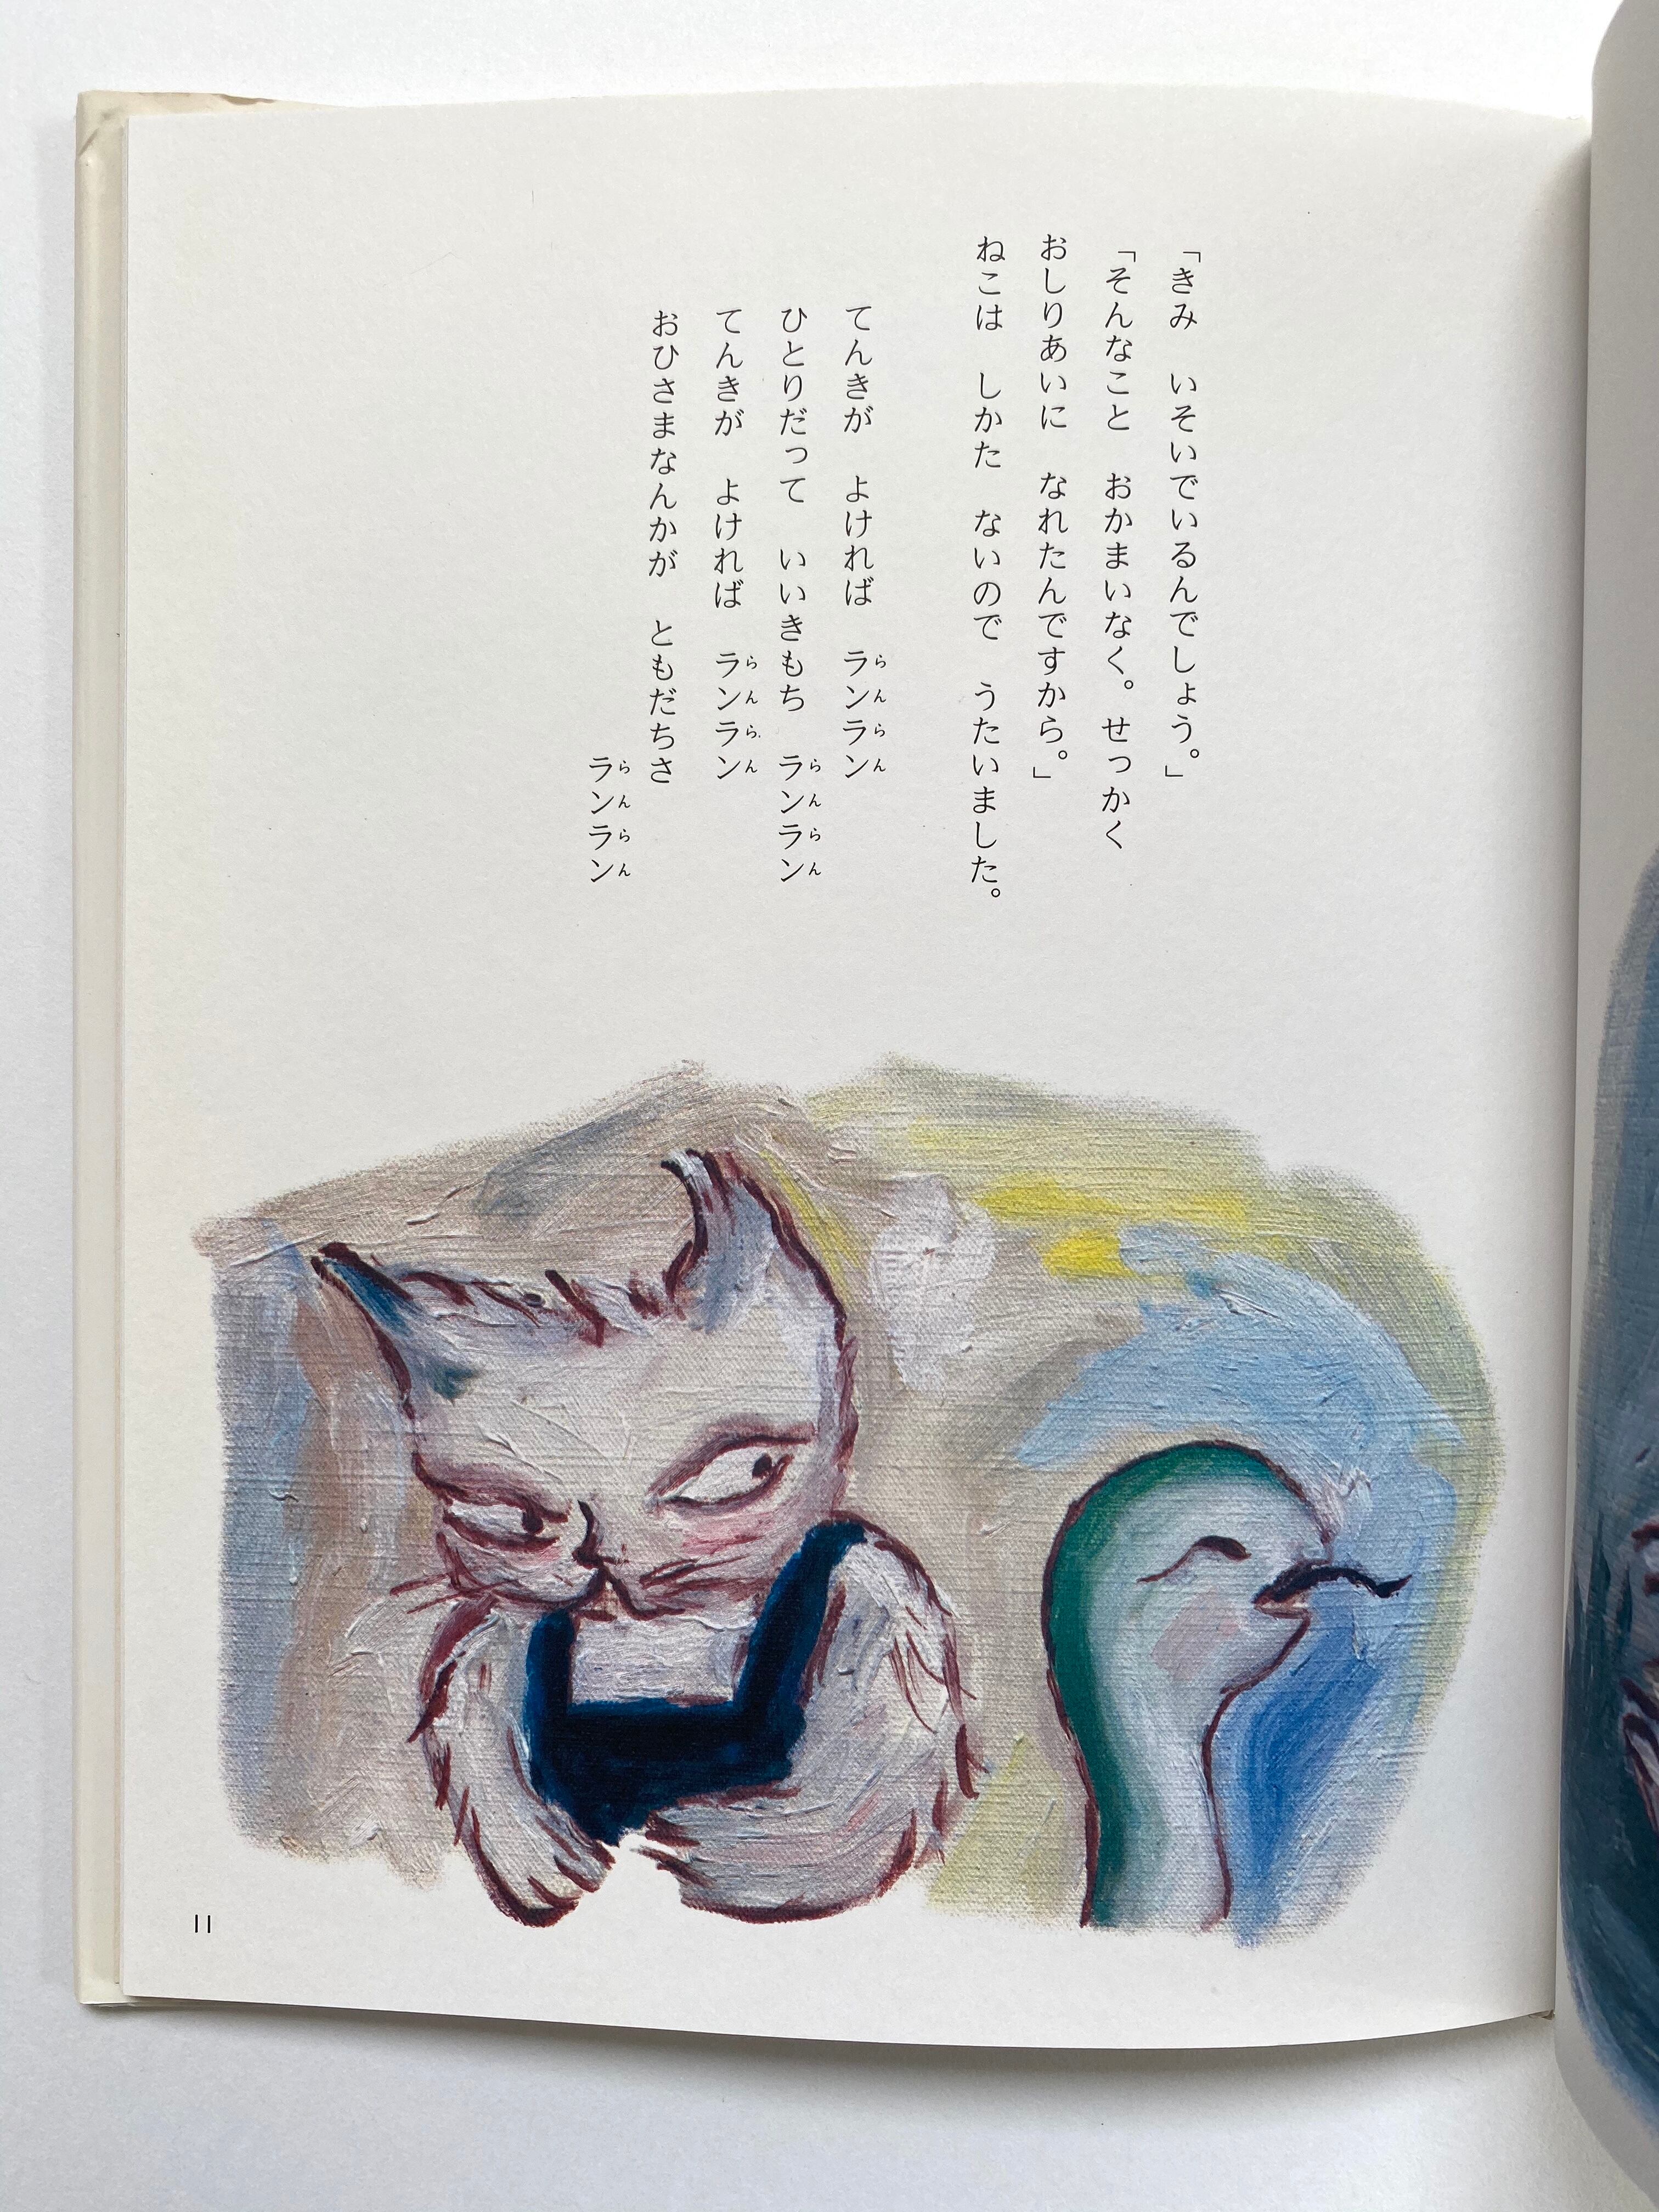 「きみ　いそいでいるんでしょう。」
「そんなこと　おかまいなく。せっかく
おしりあいに　なれたんですから。」
ねこは　しかた　ないので　うたいました。
てんきが　よければ　ランラン
らんらん
ひとりだって　いいきもち　ランラン
らんらん
てんきが　よければ　ランラン
らんらん
おひさまなんかが　ともだちさ
ランラン
らんらん
11